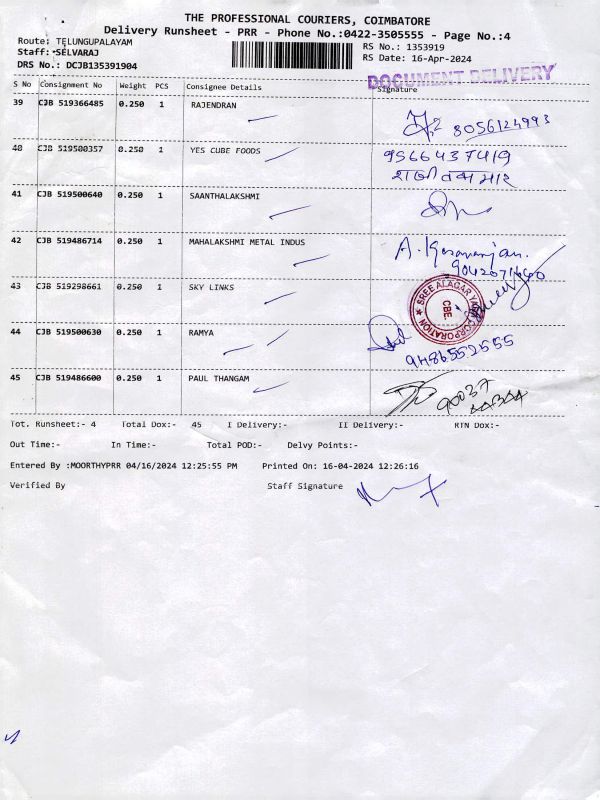 THE PROFESSIONAL COURIERS, COIMBATORE
Delivery Runsheet - PRR - Phone No.:0422-3505555 - Page No.:4
Route: TELUNGUPALAYAM
RS No.: 1353919
Staff: SELVARAJ
RS Date: 16-Apr-2024
DRS No.: DCJB135391904
DOCUMENT DELIVERY
S No Consignment No Weight PCS Consignee Details Signature
39 CJB 519366485 0.250 1 RAJENDRAN
8056124993
40 CJB 519500357 0.250 1 YES CUBE FOODS
9566437419
41 CJB 519500640 0.250 1 SAANTHALAKSHMI
42 CJB 519486714 0.250 1 MAHALAKSHMI METAL INDUS
43 CJB 519298661 0.250 1 SKY LINKS
SREE ALAGAR YARN CORPORATION
CBE
44 CJB 519500630 0.250 1 RAMYA
9486552555
45 CJB 519486600 0.250 1 PAUL THANGAM
Tot. Runsheet:- 4 Total Dox:- 45 I Delivery:- II Delivery:- RTN Dox:-
Out Time:- In Time:- Total POD:- Delvy Points:-
Entered By :MOORTHYPRR 04/16/2024 12:25:55 PM Printed On: 16-04-2024 12:26:16
Verified By Staff Signature